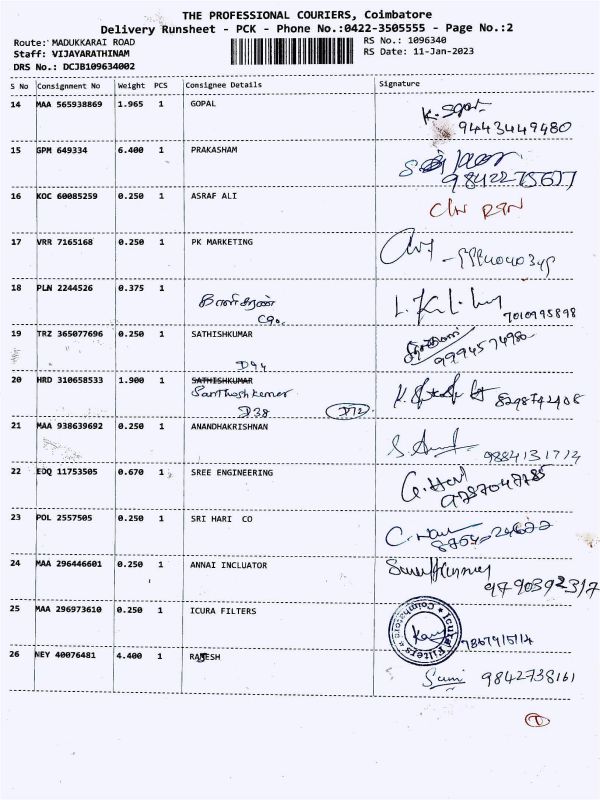 THE PROFESSIONAL COURIERS, Coimbatore
Delivery Runsheet - PCK - Phone No.:0422-3505555 - Page No.:2
Route: MADUKKARAI ROAD
RS No.: 1096340
Staff: VIJAYARATHINAM
RS Date: 11-Jan-2023
DRS No.: DCJB109634002
S No Consignment No Weight PCS Consignee Details Signature
14 MAA 565938869 1.965 1 GOPAL
9443449480
15 GPM 649334 6.400 1 PRAKASHAM
9842275677
16 KOC 60085259 0.250 1 ASRAF ALI
17 VRR 7165168 0.250 1 PK MARKETING
18 PLN 2244526 0.375 1
7010995898
19 TRZ 365077696 0.250 1 SATHISHKUMAR
9994574980
D94
20 HRD 310658533 1.900 1 SATHISHKUMAR
Santhosh kumar
8298742908
D38 D72
21 MAA 938639692 0.250 1 ANANDHAKRISHNAN
9884131714
22 EDQ 11753505 0.670 1 SREE ENGINEERING
9787047785
23 POL 2557505 0.250 1 SRI HARI CO
24 MAA 296446601 0.250 1 ANNAI INCLUATOR
9790392317
25 MAA 296973610 0.250 1 ICURA FILTERS
Icura Filters * Coimbatore *
26 NEY 40076481 4.400 1 RAMESH
9842738161